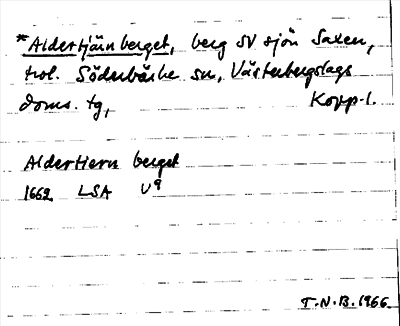 *Aldertjärnberget, berg SV sjön Saxen,
trol. Söderbärke sn, Västerbergslags
doms. tg, Kopp. l.
Aldertiern berget
1662 LSA U9
T.N.B. 1966